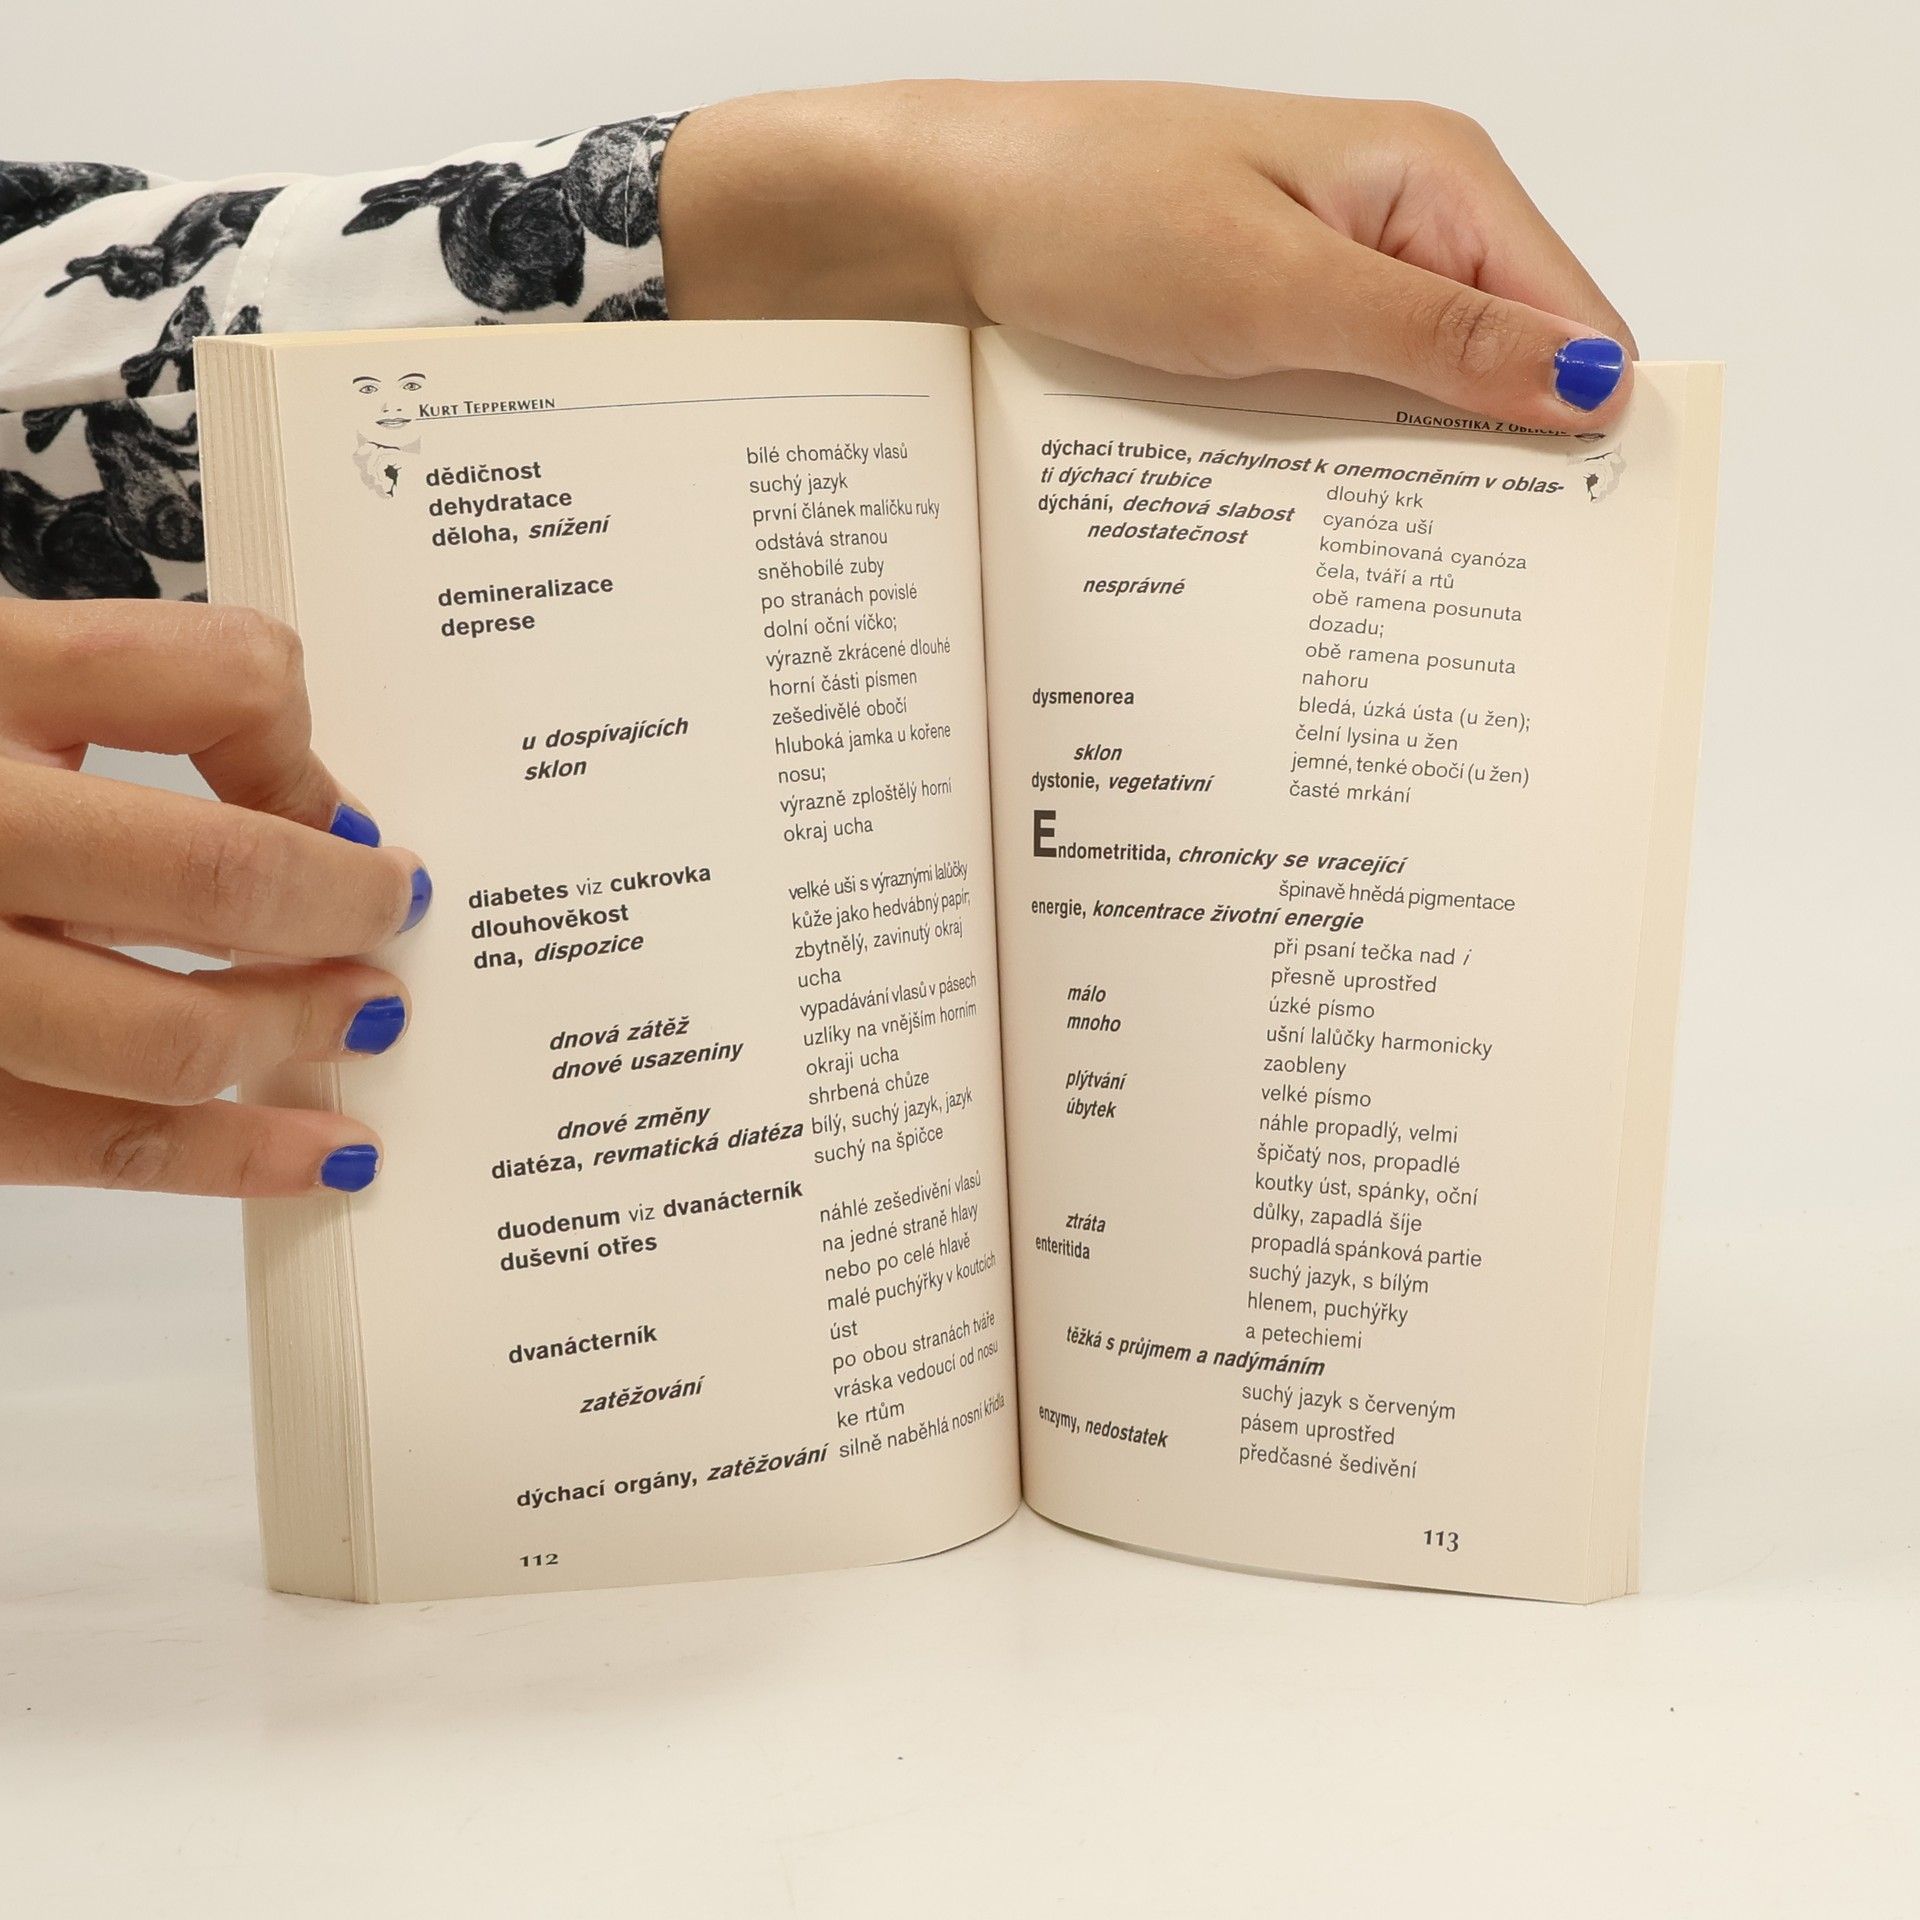 KURT TEPPERWEIN
dědičnost bílé chomáčky vlasů
dehydratace suchý jazyk
děloha, snížení první článek malíčku ruky
odstává stranou
demineralizace sněhobílé zuby
deprese po stranách povislé
dolní oční víčko;
výrazně zkrácené dlouhé
horní části písmen
u dospívajících zešedivělé obočí
sklon hluboká jamka u kořene
nosu;
výrazně zploštělý horní
okraj ucha
diabetes viz cukrovka
dlouhověkost velké uši s výraznými lalůčky
dna, dispozice kůže jako hedvábný papír;
zbytnělý, zavinutý okraj
ucha
dnová zátěž vypadávání vlasů v pásech
dnové usazeniny uzlíky na vnějším horním
okraji ucha
dnové změny shrbená chůze
diatéza, revmatická diatéza bílý, suchý jazyk, jazyk
suchý na špičce
duodenum viz dvanácterník
duševní otřes náhlé zešedivění vlasů
na jedné straně hlavy
nebo po celé hlavě
dvanácterník malé puchýřky v koutcích
úst
zatěžování po obou stranách tváře
vráska vedoucí od nosu
ke rtům
dýchací orgány, zatěžování silně naběhlá nosní křídla
112
DIAGNOSTIKA Z
dýchací trubice, náchylnost k onemocněním v oblas-
ti dýchací trubice dlouhý krk
dýchání, dechová slabost cyanóza uší
nedostatečnost kombinovaná cyanóza
čela, tváří a rtů
nesprávné obě ramena posunuta
dozadu;
obě ramena posunuta
nahoru
dysmenorea bledá, úzká ústa (u žen);
čelní lysina u žen
sklon jemné, tenké obočí (u žen)
dystonie, vegetativní časté mrkání
Endometritida, chronicky se vracející
špinavě hnědá pigmentace
energie, koncentrace životní energie
při psaní tečka nad i
přesně uprostřed
málo úzké písmo
mnoho ušní lalůčky harmonicky
zaobleny
plýtvání velké písmo
úbytek náhle propadlý, velmi
špičatý nos, propadlé
koutky úst, spánky, oční
důlky, zapadlá šíje
ztráta propadlá spánková partie
enteritida suchý jazyk, s bílým
hlenem, puchýřky
a petechiemi
těžká s průjmem a nadýmáním
suchý jazyk s červeným
pásem uprostřed
enzymy, nedostatek předčasné šedivění
113